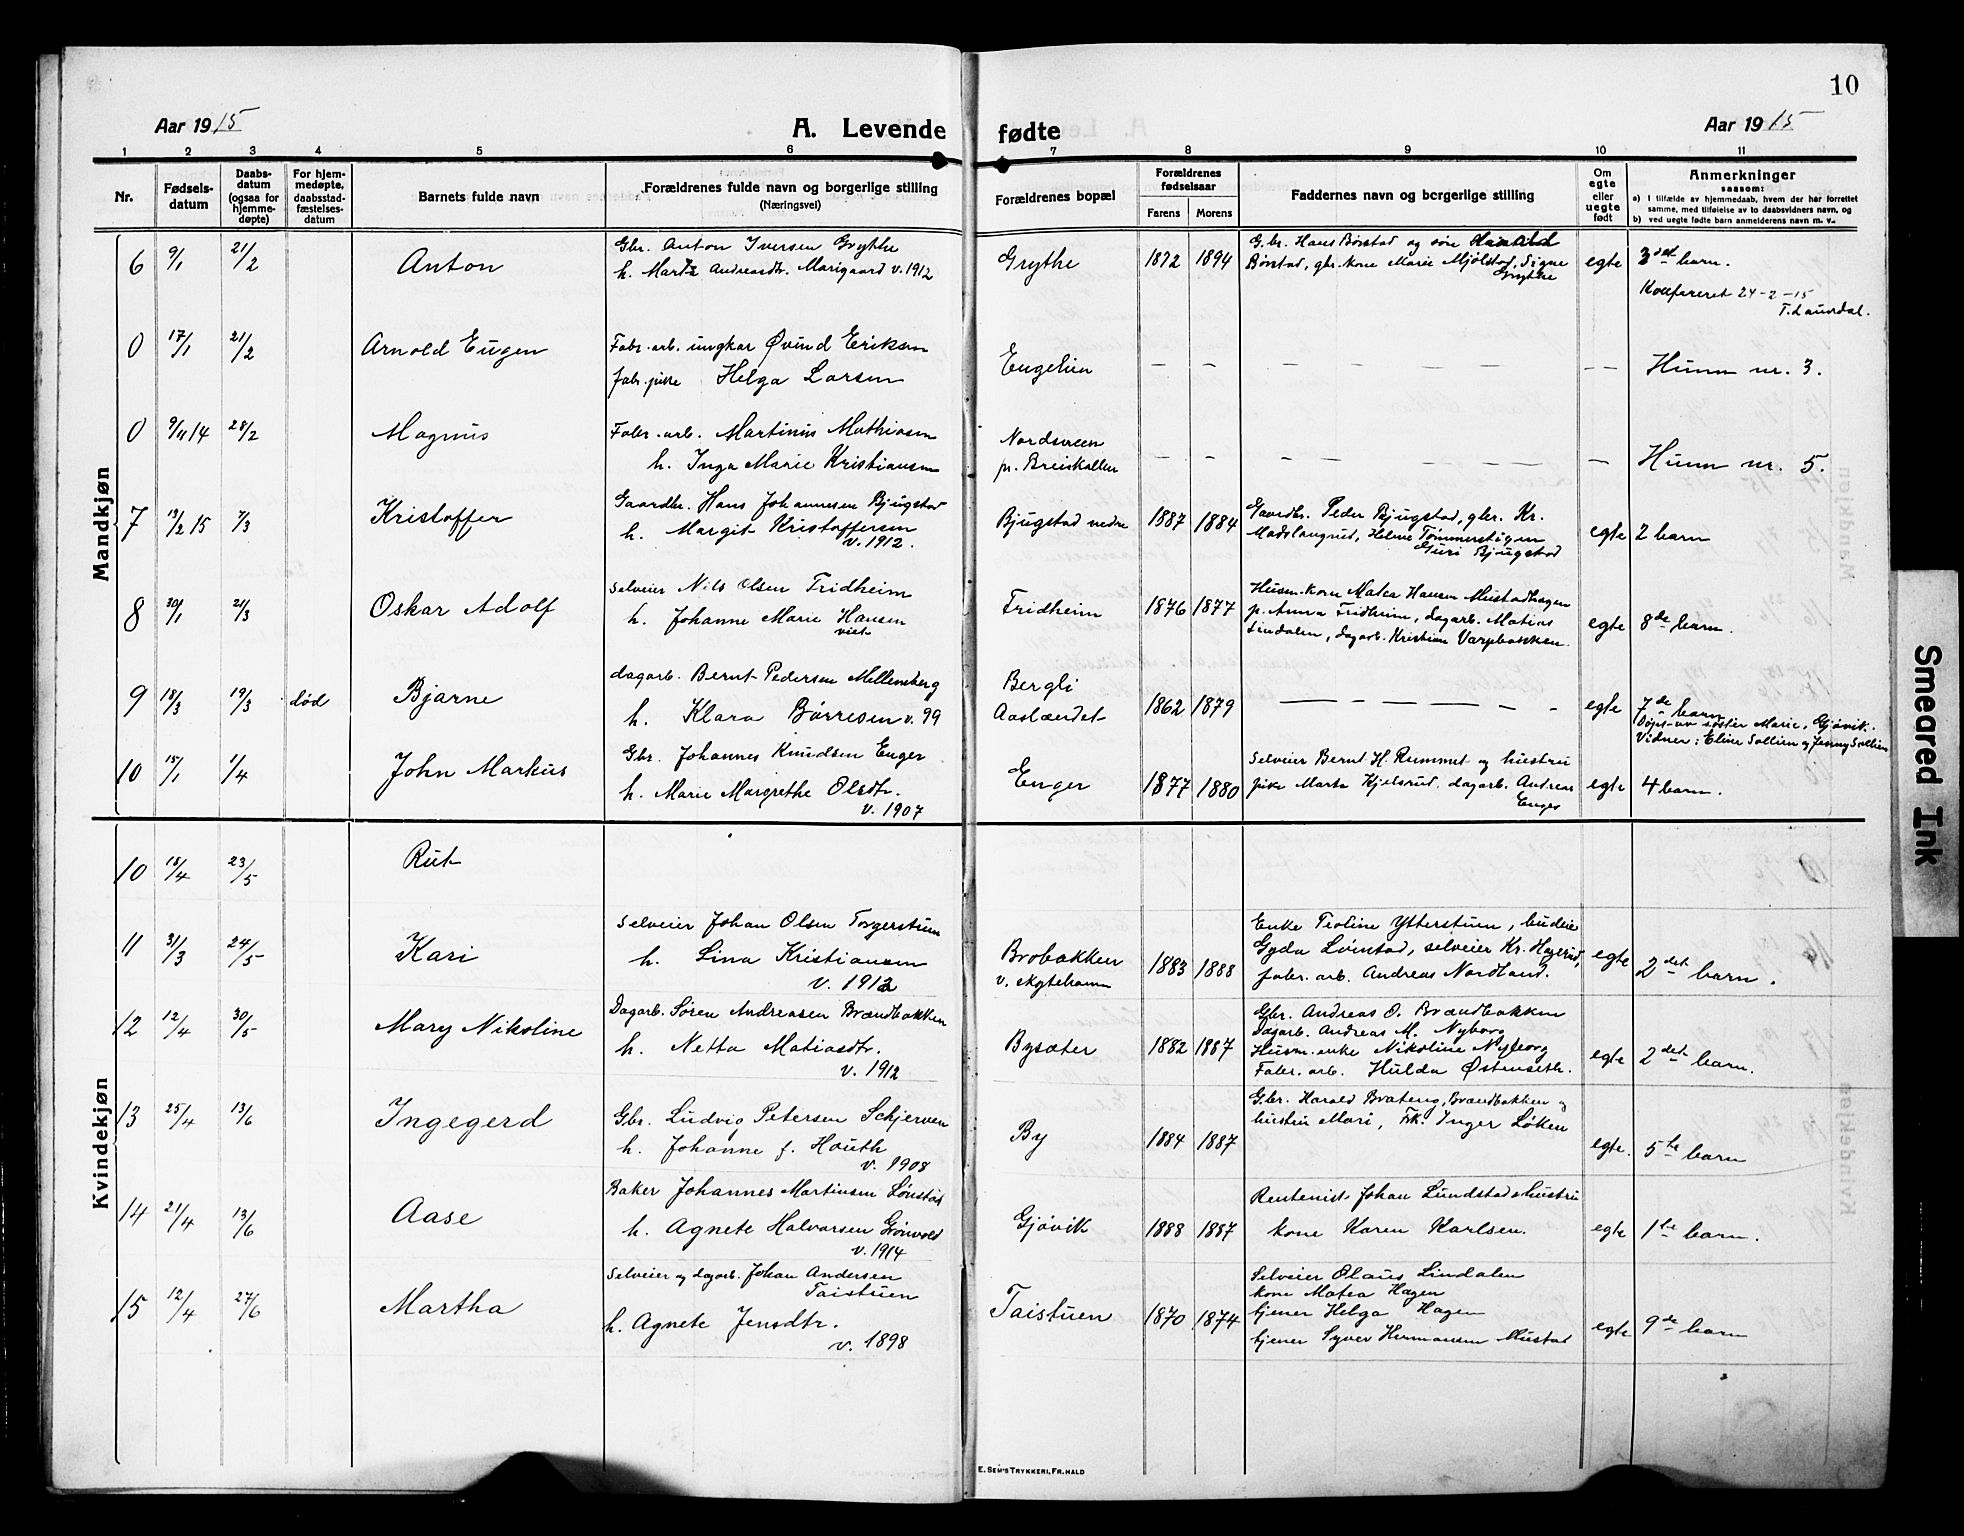 10
Aar 1915
A. Levende fødte
Aar 1915
1 2 3 4 5 6 7 8 9 10 11
Nr.
Fødsels-
datum
Daabs-
datum
(ogsaa for
hjemme-
døpte)
For hjem-
medøpte,
daabsstad-
fæstelses-
datum
Barnets fulde navn
Forældrenes fulde navn og borgerlige stilling
(Næringsvei)
Forældrenes bopæl
Forældrenes
fødselsaar
Farens Morens
Faddernes navn og borgerlige stilling
Om
egte
eller
uegte
født
Anmerkninger
saasom:
a) I tilfælde av hjemmedaab, hvem der har forrettet
samme, med tilføielse av to daabsvidners navn, og
b) ved uegte fødte barn anmelderens navn m. v.
Mandkjøn
6 9/1 21/2 Anton
Gbr. Anton Iversen Grythe
h. Marta Andreasdtr. Marigaard v. 1912
Grythe 1872 1894
G.br. Hans Børstad og søn Harald
Børstad, gbr. kone Marie Mjølstad, Signe
Grythe
egte 3det barn.
Konfereret 24-2-15
T. Laurdal.
0 17/1 21/2 Arnold Eugen
Fabr. arb. ungkar Øvind Eriksen
fabr. pike Helga Larsen
Engelien — — — — — — — — Hunn nr. 3.
0 9/11 14 28/2 Magnus
Fabr. arb. Martinus Mathiasen
h. Inga Marie Kristiansen
Nordsveen
p. Breiskallen
— — — — — — — Hunn nr. 5.
7 13/2 15 7/3 Kristoffer
Gaardbr. Hans Johannesen Bjugstad
h. Margit Kristoffersen
v. 1912.
Bjugstad nedre 1887 1884
Gaardbr. Peder Bjugstad, gbr. Kr.
Madslangrud, Helene Tømmerstigen
Guri Bjugstad
egte 2 barn
8 30/1 21/3 Oskar Adolf
Selveier Nils Olsen Fridheim
h. Johanne Marie Hansen
viet
Fridheim 1876 1877
Husm. kone Matea Hansen Mustadhagen
p. Anna Fridheim, dagarb. Matias
Lindalen, dagarb. Kristian Varpbakken.
egte 8de barn.
9 18/3 19/3 død Bjarne
dagarb. Bernt Pedersen Mellemberg
h. Klara Børresen v. 99
Bergli
Aaslændet
1862 1879 — — — — — — — egte
7de barn
Døpt av søster Marie, Gjøvik.
Vidner: Eline Sollien og Jenny Sollien
10 15/1 1/4 John Markus
Gbr. Johannes Knudsen Enger
h. Marie Margrethe Olsdtr.
v. 1907
Enger 1877 1880
Selveier Bernt H. Rummet og hustru
pike Marta Kjelsrud. dagarb. Andreas
Enger
egte 4 barn.
Kvindekjøn
10 18/4 23/5 Rut
11 31/3 24/5 Kari
Selveier Johan Olsen Torgerstuen
h. Lina Kristiansen
v. 1912
Brobakken
1883 1888
Enke Peoline Ytterstuen, budeie
Gyda Lønstad, selveier Kr. Hagerud,
fabr. arb. Andreas Nordland.
egte 2det barn.
12 12/4 30/5 Mary Nikoline
Dagarb. Søren Andreasen Brændbakken
h. Netta Matiasdtr.
v. 1912
Bysæter 1882 1887
Gbr. Andreas O. Brændbakken
Dagarb. Andreas M. Nyborg
Husm. enke Nikoline Nyborg
Fabr. arb. Hulda Østenseth.
egte 2det barn.
13 25/4 13/6 Ingegerd
Gbr. Ludvig Petersen Schjerven
h. Johanne f. Houth
v. 1908
By 1884 1887
G.br. Harald Brateng, Brændbakken og
hustru Mari, Frk. Inger Løken
egte. 5te barn
14 21/4 13/6 Aase
Baker Johannes Martinsen Lønstad
h. Agnete Halvorsen Grønvold
v. 1914
Gjøvik 1888 1887
Rentenist Johan Lundstad & hustru
kone Karen Karlsen.
egte 1te barn.
15 12/4 27/6 Martha
Selveier og dagarb. Johan Andersen
Taistuen
h. Agnete Jensdtr.
v. 1898
Taistuen 1870 1874
Selveier Olaus Lindalen
kone Matea Hagen
tjener Helga Hagen
tjener Syver Hermansen Mustad
egte 9de barn
E. SEM'S TRYKKERI, FR.HALD
Smeared Ink